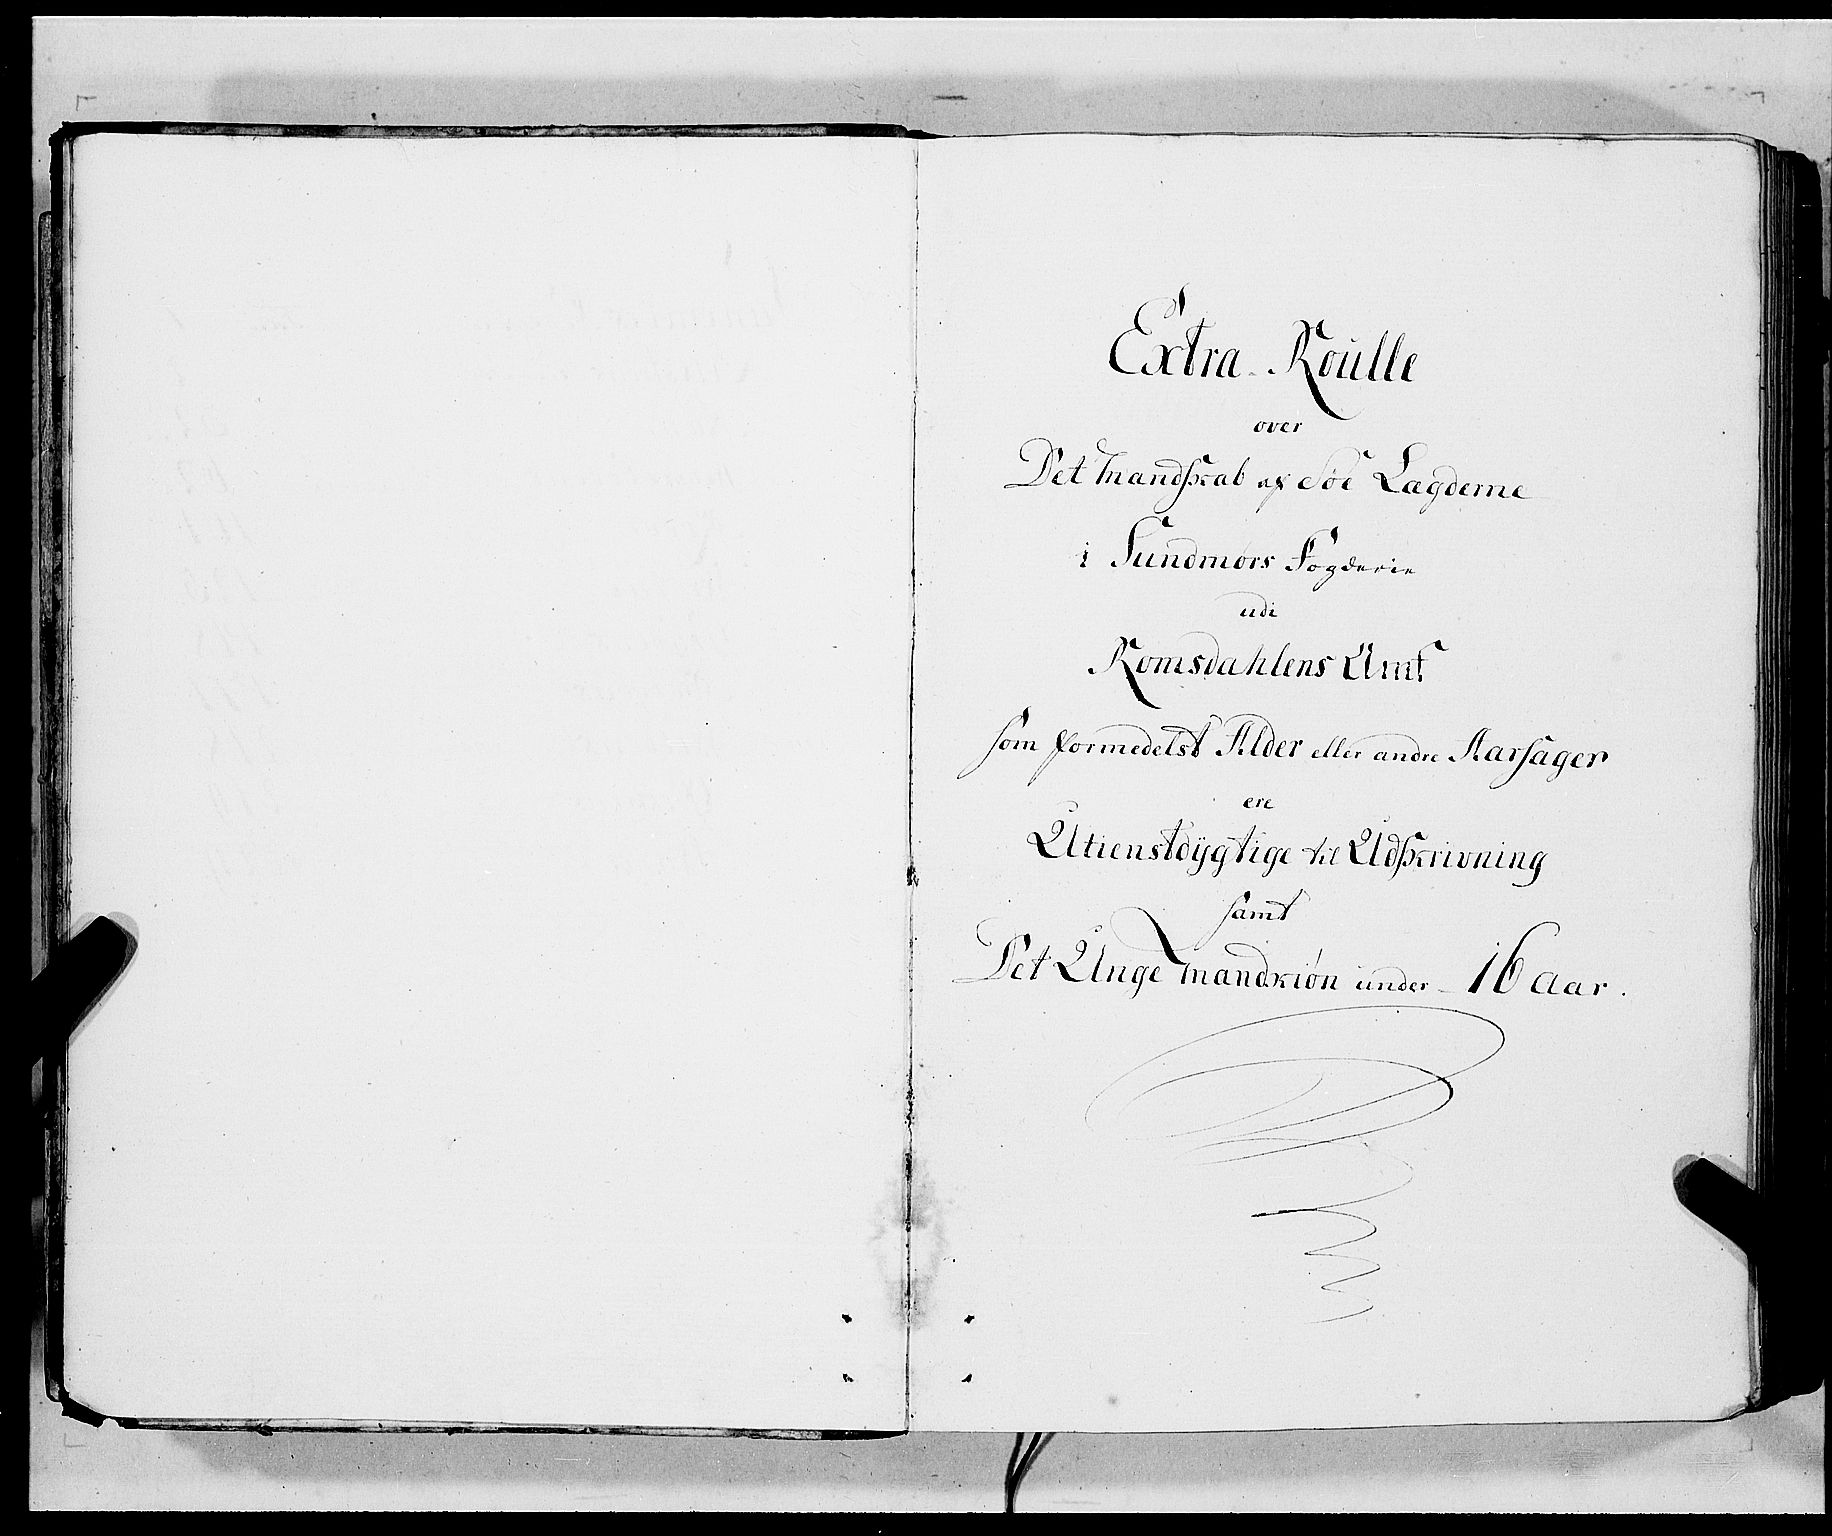 Extra-Roulle
over
Det Mandskab af Søe Lægderne
i Sundmørs Fogderie
udi
Romsdahlens Amt
som formedelst Alder eller andre Aarsager
ere
Utienstdÿgtige til Udskrivning
samt
Det Unge Mandkiøn under 16 Aar.